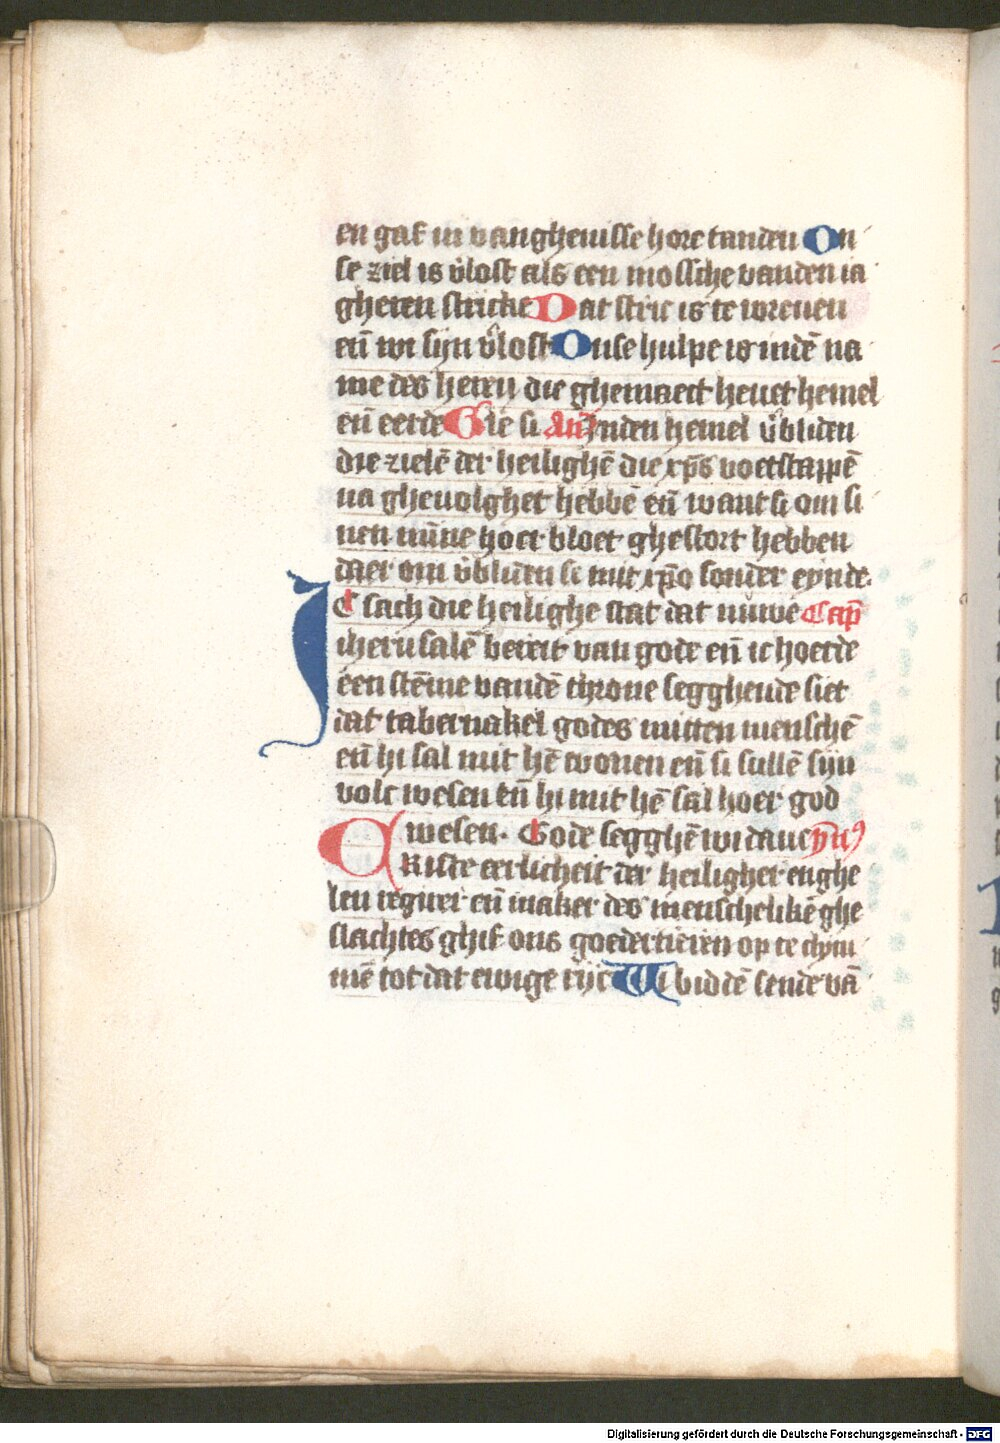 en gaf in vanghenisse hore tanden On
se ziel is v̂lost als een mossche vanden ia
gheren stricke Dat stric is te wreven
en̄ wi sijn v̂lost Onse hulpe is indē na
me des heren die ghemaect hevet hemel
en̄ eerde Glē si An̄ Inden hemel v̂bliden
die zielē der heilighē die xp̄s voetstappē
na ghevolghet hebbē en̄ want si om si
nen mīne hoer bloet ghestort hebben
daer om v̂bliden si mit xp̄o sonder eynde.
Ic sach die heilighe stat dat nuwe Cap̄
iherusalē bereit van gode en̄ ic hoerde
een stēme vandē throne segghende siet
dat tabernakel godes mitten menschē
en̄ hi sal mit hē wonen en̄ si sullē sijn
volc wesen en̄ hi mit hē sal hoer god
wesen. Gode segghē wi danc ym̄
Criste eerlicheit der heiligher enghe
len regnier en̄ maker des menschelikē ghe
slachtes ghif ons goedertieren op te clym
mē tot dat ewige rijc Wi biddē sende vā
Digitalisierung gefördert durch die Deutsche Forschungsgemeinschaft - DFG